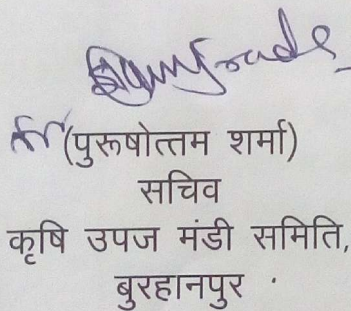 (पुरूषोत्तम शर्मा)
सचिव
कृषि उपज मंडी समिति,
बुरहानपुर